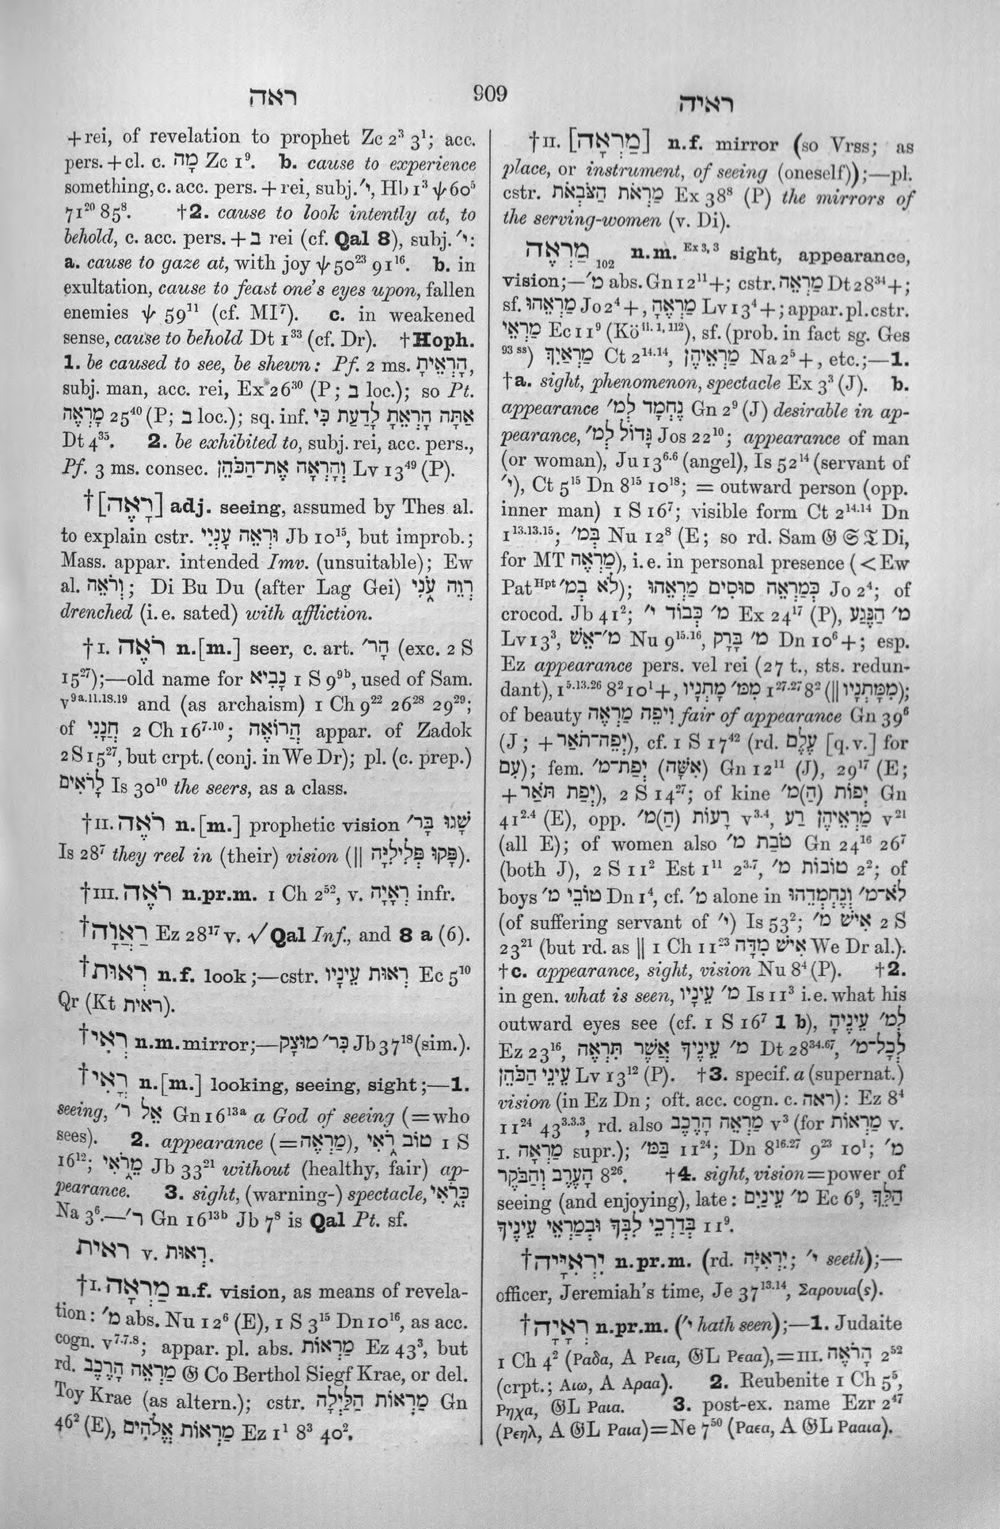 ראה
909
ראיה
+rei, of revelation to prophet Zc 2³ 3¹; acc.
pers. + cl. c. מָה Zc 1⁹. b. cause to experience
something, c. acc. pers. + rei, subj. ׳י, Hb 1³ ψ 60⁵
71²⁰ 85⁸. †2. cause to look intently at, to
behold, c. acc. pers. + ב rei (cf. Qal 8), subj. ׳י:
a. cause to gaze at, with joy ψ 50²³ 91¹⁶. b. in
exultation, cause to feast one's eyes upon, fallen
enemies ψ 59¹¹ (cf. MI⁷). c. in weakened
sense, cause to behold Dt 1³³ (cf. Dr). †Hoph.
1. be caused to see, be shewn: Pf. 2 ms. הָרְאֵיתָ,
subj. man, acc. rei, Ex 26³⁰ (P; ב loc.); so Pt.
מָרְאֶה 25⁴⁰ (P; ב loc.); sq. inf. אַתָּה הָרְאֵתָ לָדַעַת כִּי
Dt 4³⁵. 2. be exhibited to, subj. rei, acc. pers.,
Pf. 3 ms. consec. וְהָרְאָה אֶת־הַכֹּהֵן Lv 13⁴⁹ (P).
†[רָאֶה] adj. seeing, assumed by Thes al.
to explain cstr. וּרְאֵה עָנְיִי Jb 10¹⁵, but improb.;
Mass. appar. intended Imv. (unsuitable); Ew
al. וְרֹאֶה; Di Bu Du (after Lag Gei) רְוֵה עֳנִי
drenched (i.e. sated) with affliction.
†I. רֹאֶה n.[m.] seer, c. art. הָר׳ (exc. 2 S
15²⁷);—old name for נָבִיא 1 S 9⁹ᵇ, used of Sam.
v⁹ᵃ·¹¹·¹⁸·¹⁹ and (as archaism) 1 Ch 9²² 26²⁸ 29²⁹;
of חֲנָנִי 2 Ch 16⁷·¹⁰; הֲרוֹאֶה appar. of Zadok
2 S 15²⁷, but crpt. (conj. in We Dr); pl. (c. prep.)
לָרֹאִים Is 30¹⁰ the seers, as a class.
†II. רֹאֶה n.[m.] prophetic vision שָׁגוּ בָּר׳
Is 28⁷ they reel in (their) vision (|| פָּקוּ פְּלִילִיָּה).
†III. רֹאֶה n.pr.m. 1 Ch 2⁵², v. רְאָיָה infr.
†רַאֲוָה Ez 28¹⁷ v. √ Qal Inf., and 8 a (6).
†רְאוּת n.f. look;—cstr. רְאוּת עֵינָיו Ec 5¹⁰
Qr (Kt ראית).
†רְאִי n.m. mirror;—כִּר׳ מוּצָק Jb 37¹⁸ (sim.).
†רֳאִי n.[m.] looking, seeing, sight;—1.
seeing, אֵל ר׳ Gn 16¹³ᵃ a God of seeing (= who
sees). 2. appearance (= מַרְאֶה), טוֹב רֹאִי 1 S
16¹²; מֵרֹאִי Jb 33²¹ without (healthy, fair) ap-
pearance. 3. sight, (warning-) spectacle, כְּרֹאִי
Na 3⁶.—ר׳ Gn 16¹³ᵇ Jb 7⁸ is Qal Pt. sf.
ראית v. רְאוּת.
†I. מַרְאָה n.f. vision, as means of revela-
tion: מ׳ abs. Nu 12⁶ (E), 1 S 3¹⁵ Dn 10¹⁶, as acc.
cogn. v⁷·⁷·⁸; appar. pl. abs. מַרְאוֹת Ez 43³, but
rd. מַרְאֵה הָרֶכֶב 𝔊 Co Berthol Siegf Krae, or del.
Toy Krae (as altern.); cstr. מַרְאֹת הַלַּיְלָה Gn
46² (E), מַרְאוֹת אֱלֹהִים Ez 1¹ 8³ 40².
†II. [מַרְאָה] n.f. mirror (so Vrss; as
place, or instrument, of seeing (oneself));—pl.
cstr. מַרְאֹת הַצֹּבְאֹת Ex 38⁸ (P) the mirrors of
the serving-women (v. Di).
מַרְאֶה₁₀₂ n.m. Ex 3, 3 sight, appearance,
vision;—מ׳ abs. Gn 12¹¹ +; cstr. מַרְאֵה Dt 28³⁴ +;
sf. מַרְאֵהוּ Jo 2⁴ +, מַרְאֶהָ Lv 13⁴ +; appar. pl. cstr.
מַרְאֵי Ec 11⁹ (Kö II. 1, 112), sf. (prob. in fact sg. Ges
93 ss) מַרְאַיִךְ Ct 2¹⁴·¹⁴, מַרְאֵיהֶן Na 2⁵ +, etc.;—1.
†a. sight, phenomenon, spectacle Ex 3³ (J). b.
appearance נֶחְמָד לְמ׳ Gn 2⁹ (J) desirable in ap-
pearance, גָּדוֹל לְמ׳ Jos 22¹⁰; appearance of man
(or woman), Ju 13⁶·⁶ (angel), Is 52¹⁴ (servant of
׳י), Ct 5¹⁵ Dn 8¹⁵ 10¹⁸; = outward person (opp.
inner man) 1 S 16⁷; visible form Ct 2¹⁴·¹⁴ Dn
1¹³·¹³·¹⁵; בְּמ׳ Nu 12⁸ (E; so rd. Sam 𝔊 𝔖 𝔗 Di,
for MT מַרְאֶה), i.e. in personal presence (< Ew
Pat Hpt לֹא בְמ׳); כְּמַרְאֵה סוּסִים מַרְאֵהוּ Jo 2⁴; of
crocod. Jb 41²; מ׳ כְּבוֹד י׳ Ex 24¹⁷ (P), מ׳ הַנֶּגַע
Lv 13³, מ׳־אֵשׁ Nu 9¹⁵·¹⁶, מ׳ בָרָק Dn 10⁶ +; esp.
Ez appearance pers. vel rei (27 t., sts. redun-
dant), 1⁵·¹³·²⁶ 8² 10¹ +, מִמּ׳ מָתְנָיו 1²⁷·²⁷ 8² (|| מִמָּתְנָיו);
of beauty וִיפֵה מַרְאֶה fair of appearance Gn 39⁶
(J; + יְפֵה־תֹאַר), cf. 1 S 17⁴² (rd. עֶלֶם [q.v.] for
עִם); fem. יְפַת־מ׳ (אִשָּׁה) Gn 12¹¹ (J), 29¹⁷ (E;
+ יְפַת תֹּאַר), 2 S 14²⁷; of kine יְפוֹת (הַ)מ׳ Gn
41²·⁴ (E), opp. רָעוֹת (הַ)מ׳ v³·⁴, מַרְאֵיהֶן רַע v²¹
(all E); of women also טֹבַת מ׳ Gn 24¹⁶ 26⁷
(both J), 2 S 11² Est 1¹¹ 2³·⁷, טוֹבוֹת מ׳ 2²; of
boys טוֹבֵי מ׳ Dn 1⁴, cf. מ׳ alone in לֹא־מ׳ וְנֶחְמְדֵהוּ
(of suffering servant of ׳י) Is 53²; אִישׁ מ׳ 2 S
23²¹ (but rd. as || 1 Ch 11²³ אִישׁ מִדָּה We Dr al.).
†c. appearance, sight, vision Nu 8⁴ (P). †2.
in gen. what is seen, מ׳ עֵינָיו Is 11³ i.e. what his
outward eyes see (cf. 1 S 16⁷ 1 b), לְמ׳ עֵינֶיהָ
Ez 23¹⁶, מ׳ עֵינֶיךָ אֲשֶׁר תִּרְאֶה Dt 28³⁴·⁶⁷, לְכָל־מ׳
עֵינֵי הַכֹּהֵן Lv 13¹² (P). †3. specif. a (supernat.)
vision (in Ez Dn; oft. acc. cogn. c. ראה): Ez 8⁴
11²⁴ 43³·³·³, rd. also מַרְאֵה הָרֶכֶב v³ (for מַרְאוֹת v.
I. מַרְאָה supr.); בַּמּ׳ 11²⁴; Dn 8¹⁶·²⁷ 9²³ 10¹; מ׳
הָעֶרֶב וְהַבֹּקֶר 8²⁶. †4. sight, vision = power of
seeing (and enjoying), late: מ׳ עֵינַיִם Ec 6⁹, הַלֵּךְ
בְּדַרְכֵי לִבְּךָ וּבְמַרְאֵי עֵינֶיךָ 11⁹.
†יִרְאִיָּיה n.pr.m. (rd. יִרְאִיָּה; י׳ seeth);—
officer, Jeremiah's time, Je 37¹³·¹⁴, Σαρουια(ς).
†רְאָיָה n.pr.m. (י׳ hath seen);—1. Judaite
1 Ch 4² (Ραδα, A Ρεια, 𝔊L Ρεαα), = III. הָרֹאֶה 2⁵²
(crpt.; Αιω, A Αραα). 2. Reubenite 1 Ch 5⁵,
Ρηχα, 𝔊L Ραια. 3. post-ex. name Ezr 2⁴⁷
(Ρεηλ, A 𝔊L Ραια) = Ne 7⁵⁰ (Ραεα, A 𝔊L Ρααια).